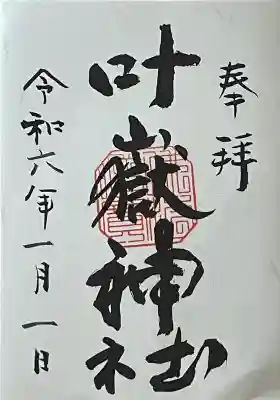 奉拝
叶嶽神社
令和六年一月一日